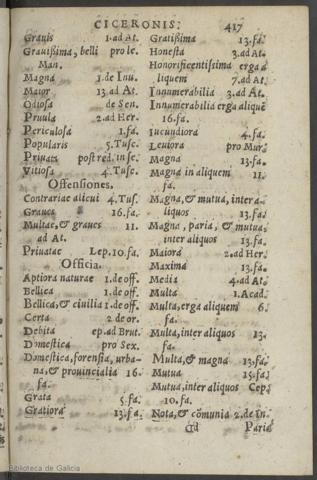 CICERONIS. 417
Grauis 1. ad At.
Grauißima, belli pro le.
Man.
Magna 1. de Inu.
Maior 13. ad At.
Odiosa de Sen.
Pruula 2. ad Her.
Periculosa 1. fa.
Popularis 5. Tusc.
Priuata post red. in se.
Vitiosa 4. Tusc.
Offensiones.
Contrariae alicui 4. Tus.
Graues 16. fa.
Multae, & graues 11.
ad At.
Priuatae Lep. 10. fa.
Officia.
Aptiora naturae 1. de off.
Bellica 1. de off.
Bellica, & ciuilia 1. de off.
Certa 2. de or.
Debita ep. ad Brut.
Domestica pro Sex.
Domestica, forensia, urba-
na, & prouincialia 16.
fa.
Grata 5. fa.
Gratiora 13. fa.
Gratißima 13. fa.
Honesta 3. ad At.
Honorificentissima erga a
liquem 7. ad At.
Innumerabilia 3. ad At.
Innumerabilia erga aliquē
16. fa.
Iucundiora 4. fa.
Leuiora pro Mur.
Magna 13. fa.
Magna in aliquem 11.
fa.
Magna, & mutua, inter a-
liquos 13. fa.
Magna, paria, & mutua,
inter aliquos 13. fa.
Maiora 2. ad Her.
Maxima 13. fa.
Media 4. ad At.
Multa 1. Acad.
Multa, erga aliquem 6.
fa.
Multa, inter aliquos 13.
fa.
Multa, & magna 13. fa.
Mutua 15. fa.
Mutua, inter aliquos Cep.
10. fa.
Nota, & cōmunia 2. de in.
Gd Paria
Biblioteca de Galicia